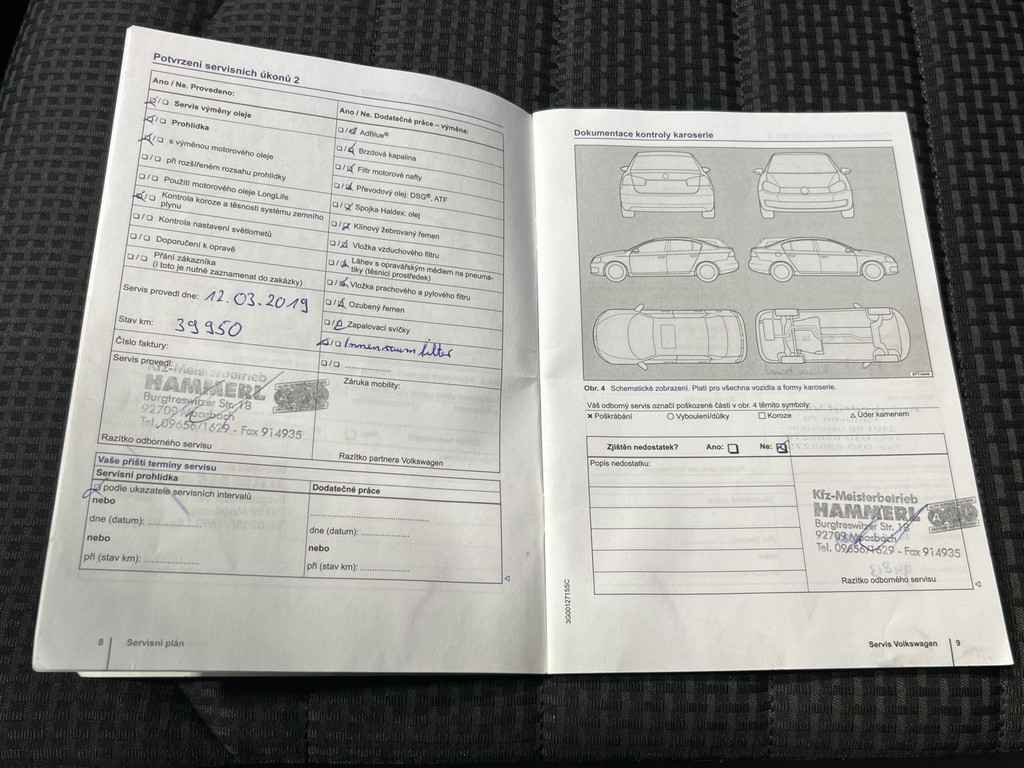 Potvrzení servisních úkonů 2
Ano / Ne. Provedeno:
❏/❏ Servis výměny oleje
❏/❏ Prohlídka
❏/❏ s výměnou motorového oleje
❏/❏ při rozšířeném rozsahu prohlídky
❏/❏ Použití motorového oleje LongLife
❏/❏ Kontrola koroze a těsnosti systému zemního
plynu
❏/❏ Kontrola nastavení světlometů
❏/❏ Doporučení k opravě
❏/❏ Přání zákazníka
(i toto je nutné zaznamenat do zakázky)
Servis provedl dne: 12.03.2019
Stav km: 39950
Číslo faktury:
Servis provedl:
Kfz-Meisterbetrieb
HAMMERL
Burgtreswitzer Str. 18
92709 Moosbach
Tel. 09656/1629 - Fax 914935
Razítko odborného servisu
Ano / Ne. Dodatečné práce – výměna:
❏/❏ AdBlue®
❏/❏ Brzdová kapalina
❏/❏ Filtr motorové nafty
❏/❏ Převodový olej: DSG®, ATF
❏/❏ Spojka Haldex: olej
❏/❏ Klínový žebrovaný řemen
❏/❏ Vložka vzduchového filtru
❏/❏ Láhev s opravářským médiem na pneuma-
tiky (těsnicí prostředek)
❏/❏ Vložka prachového a pylového filtru
❏/❏ Ozubený řemen
❏/❏ Zapalovací svíčky
❏/❏ Innenraumfilter
❏/❏ ....................
Záruka mobility:
Razítko partnera Volkswagen
Vaše příští termíny servisu
Servisní prohlídka
❏ podle ukazatele servisních intervalů
nebo
dne (datum): ....................
nebo
při (stav km): ....................
Dodatečné práce
dne (datum): ....................
nebo
při (stav km): ....................
8 Servisní plán
Dokumentace kontroly karoserie
Obr. 4 Schematické zobrazení. Platí pro všechna vozidla a formy karoserie.
Váš odborný servis označí poškozené části v obr. 4 těmito symboly:
✕ Poškrábání ○ Vyboulení/důlky □ Koroze △ Úder kamenem
Zjištěn nedostatek? Ano: ❏ Ne: ☑
Popis nedostatku:
Kfz-Meisterbetrieb
HAMMERL
Burgtreswitzer Str. 18
92709 Moosbach
Tel. 09656/1629 - Fax 914935
Razítko odborného servisu
3G0012715SC
Servis Volkswagen 9